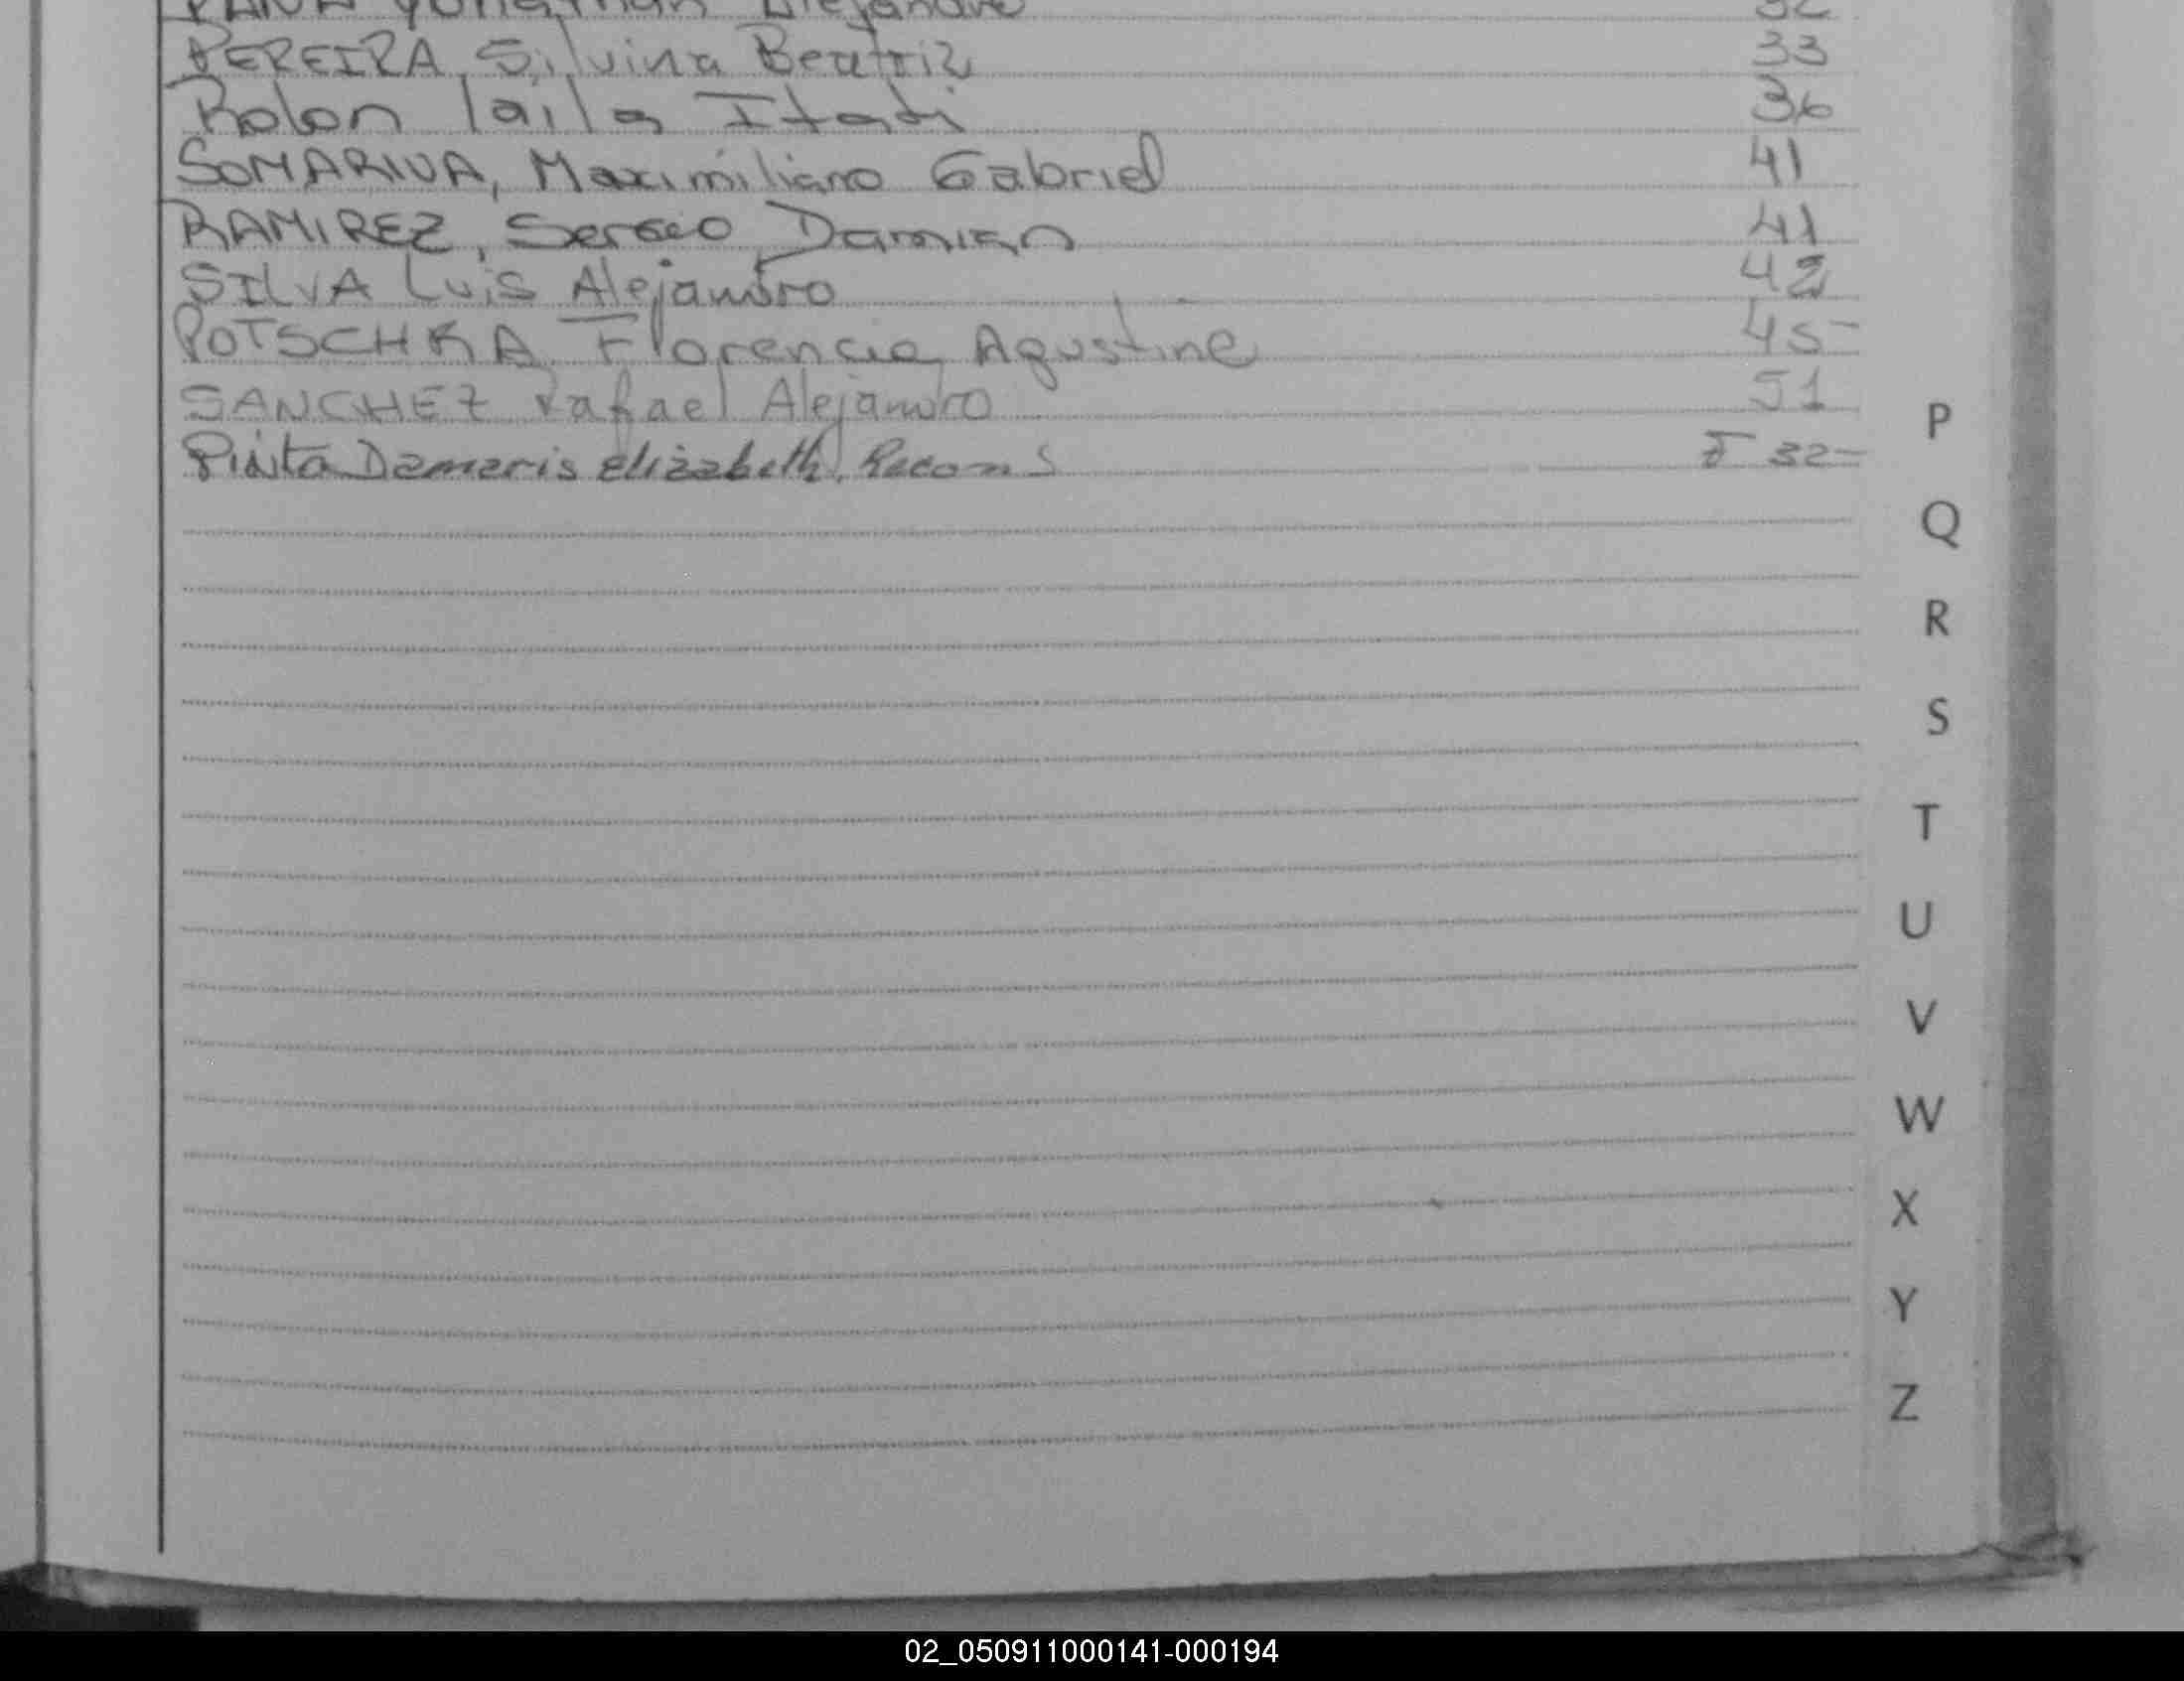 Alejandro 32
PEREIRA, Silvina Beatriz 33
Rolon laila Itati 36
SOMARIVA, Maximiliano Gabriel 41
RAMIREZ, Sergio Damian 41
SILVA Luis Alejandro 42
POTSCHKA Florencia Agustine 45
SANCHEZ Rafael Alejandro 51
P
Damaris Elizabeth, Recon S 32
Q
R
S
T
U
V
W
X
Y
Z
02_050911000141-000194